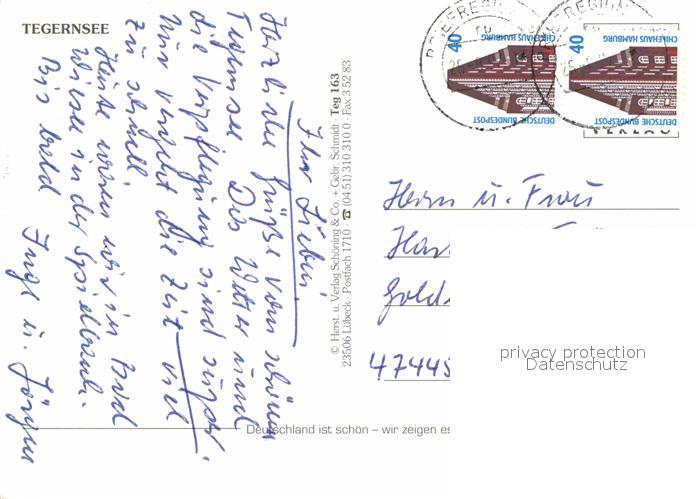 TEGERNSEE
Ihr Lieben!
Herzliche Grüße vom schönen
Tegernsee. Das Wetter und
die Verpflegung sind super!
Nur vergeht die Zeit viel
zu schnell.
Heute waren wir in Bad
Wiessee in der Spielbank.
Bis bald Inge u. Jürgen
© Herst. u. Verlag Schöning & Co. + Gebr. Schmidt · Teg 163
23506 Lübeck · Postfach 1710 · ☎ (04 51) 310 310 0 · Fax 3 52 83
40
CHILEHAUS HAMBURG
DEUTSCHE BUNDESPOST
40
CHILEHAUS HAMBURG
DEUTSCHE BUNDESPOST
VERLAG
Herrn u. Frau
47445
privacy protection
Datenschutz
Deutschland ist schön – wir zeigen es